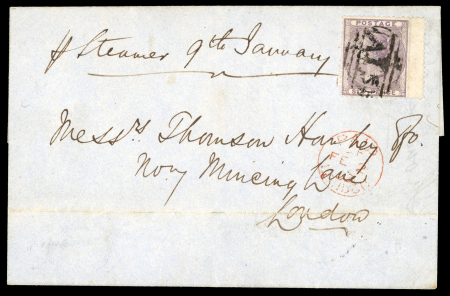 ⅌ Steamer 9th January
POSTAGE
Messrs Thomson Hankey & Co.
No 7 Mincing Lane
London
PAID